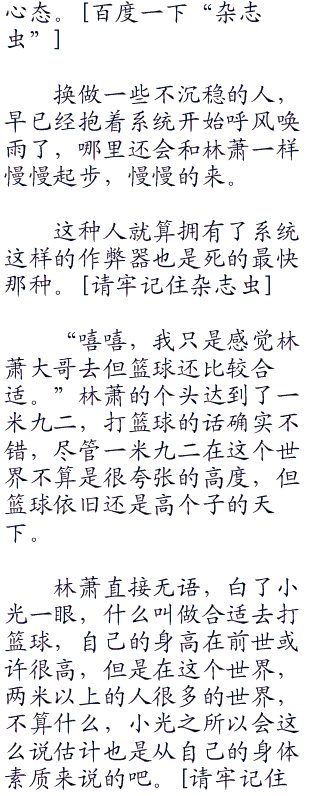 心态。[百度一下“杂志
虫”]
换做一些不沉稳的人，
早已经抱着系统开始呼风唤
雨了，哪里还会和林萧一样
慢慢起步，慢慢的来。
这种人就算拥有了系统
这样的作弊器也是死的最快
那种。[请牢记住杂志虫]
“嘻嘻，我只是感觉林
萧大哥去但篮球还比较合
适。”林萧的个头达到了一
米九二，打篮球的话确实不
错，尽管一米九二在这个世
界不算是很夸张的高度，但
篮球依旧还是高个子的天
下。
林萧直接无语，白了小
光一眼，什么叫做合适去打
篮球，自己的身高在前世或
许很高，但是在这个世界，
两米以上的人很多的世界，
不算什么，小光之所以会这
么说估计也是从自己的身体
素质来说的吧。[请牢记住